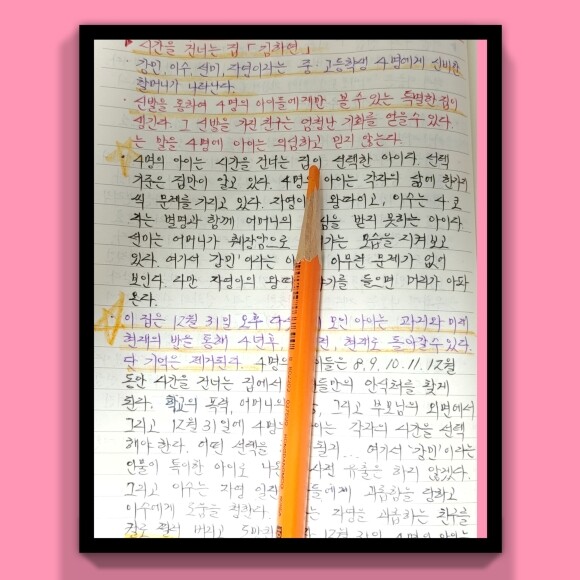 시간을 건너는 집 「김하연」
· 강민, 이수, 선미, 자영이라는 중·고등학생 4명에게 신비한
할머니가 나타난다.
· 신발을 통하여 4명의 아이들에게만 볼 수 있는 특별한 집이
생긴다. 그 신발을 가진 친구는 엄청난 기회를 얻을 수 있다.
는 말을 4명에 아이는 의심하고 믿지 않는다.
· 4명의 아이는 시간을 건너는 집이 선택한 아이다. 선택
기준은 집만이 알고 있다. 4명의 아이는 각자의 삶에 한가지
씩 문제를 가지고 있다. 자영이 왕따이고, 이수는 싸코
라는 별명과 함께 어머니의 심을 받지 못하는 아이다.
선미는 어머니가 췌장암으로 가는 모습을 지켜보고
있다. 여기서 강민 이라는 아 아무런 문제가 없어
보인다. 다만 자영이의 왕따 야기를 들으면 머리가 아파
온다.
· 이 집은 12월 31일 오후 다 모인 아이는 과거와 미래
현재의 방을 통해 4년후, 전, 현재로 돌아갈 수 있다.
단 기억은 제거된다. 4명의 이들은 8, 9, 10, 11, 12월
동안 시간을 건너는 집에서 들만의 안식처를 찾게
된다. 학교의 폭력, 어머니의 그리고 부모님의 외면에서
그리고 12월 31일에 4명 이는 각자의 시간을 선택
해야 한다. 어떤 선택을 될지... 여기서 '강민'이라는
인물이 특이한 아이로 나온 사전 유출은 하지 않겠다.
그리고 이수는 자영 일진 들에게 괴롭힘을 당하고
이수에게 도움을 청한다. 는 자영을 괴롭히는 친구를
버리고 12월 31일 4명의 아이는